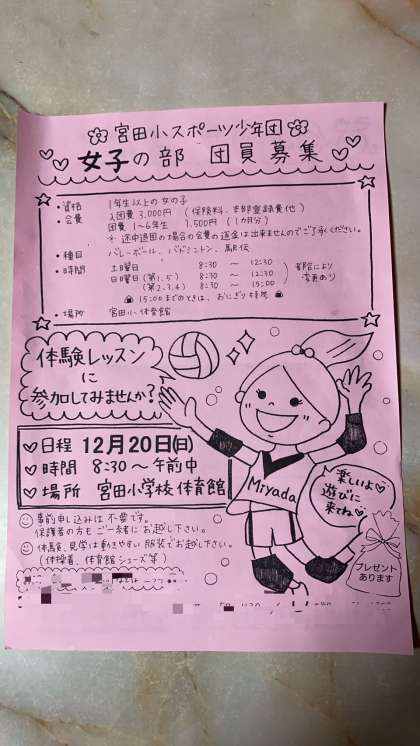 宮田小スポーツ少年団
女子の部 団員募集
・資格 1年生以上の女の子
・会費 入団費 3,000円 (保険料、支部登録費他)
団費 1〜6年生 1,500円 (1ヵ月分)
※ 途中退団の場合の会費の返金は出来ませんのでご了承ください。
・種目 バレーボール、バドミントン、駅伝
・時間 土曜日 8:30 〜 12:30
日曜日 (第1.5) 8:30 〜 12:30
(第2.3.4) 8:30 〜 15:00
都合により変更あり
15:00までのときは、おにぎり持参
・場所 宮田小体育館
体験レッスン
に
参加してみませんか?
日程 12月20日(日)
時間 8:30〜午前中
場所 宮田小学校 体育館
Miyada
楽しいよ
遊びに
来てね
プレゼント
あります
事前申し込みは不要です。
保護者の方もご一緒にお越し下さい。
体験、見学は動きやすい服装でお越し下さい。
(体操着、体育館シューズ等)